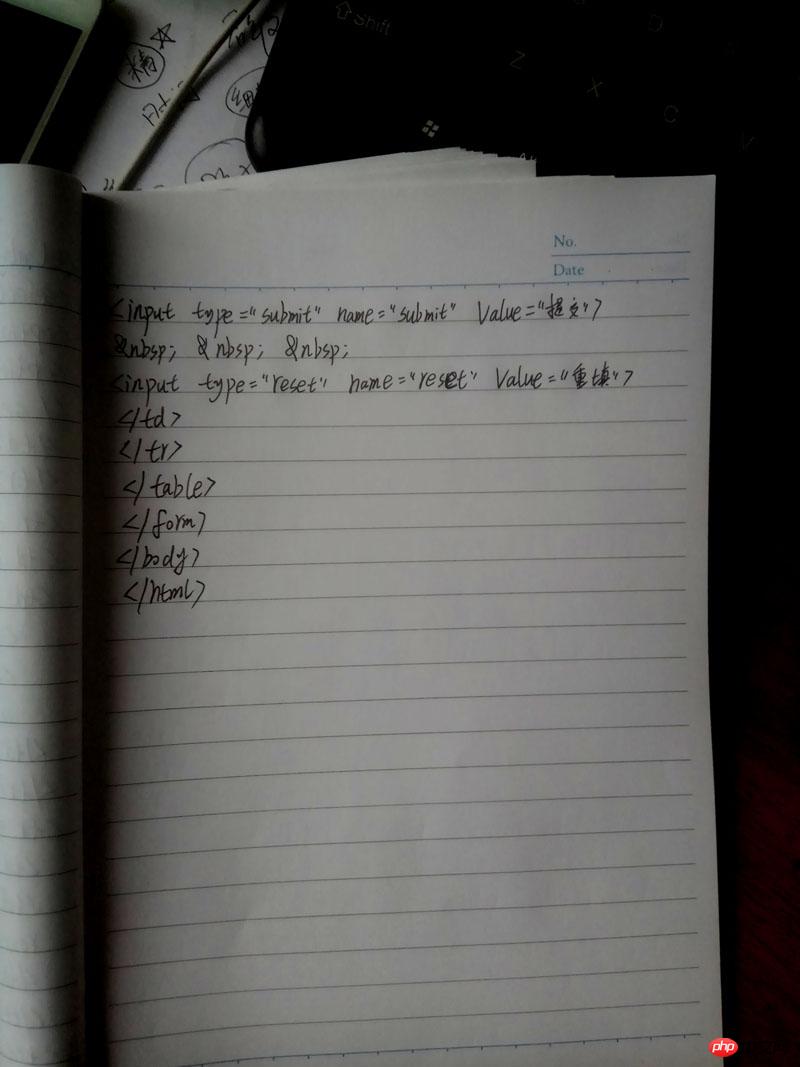 精
Shift
Z
X
C
V
No.
Date
<input type="submit" name="submit" Value="提交">
&nbsp; &nbsp; &nbsp;
<input type="reset" name="reset" Value="重填">
</td>
</tr>
</table>
</form>
</body>
</html>
php